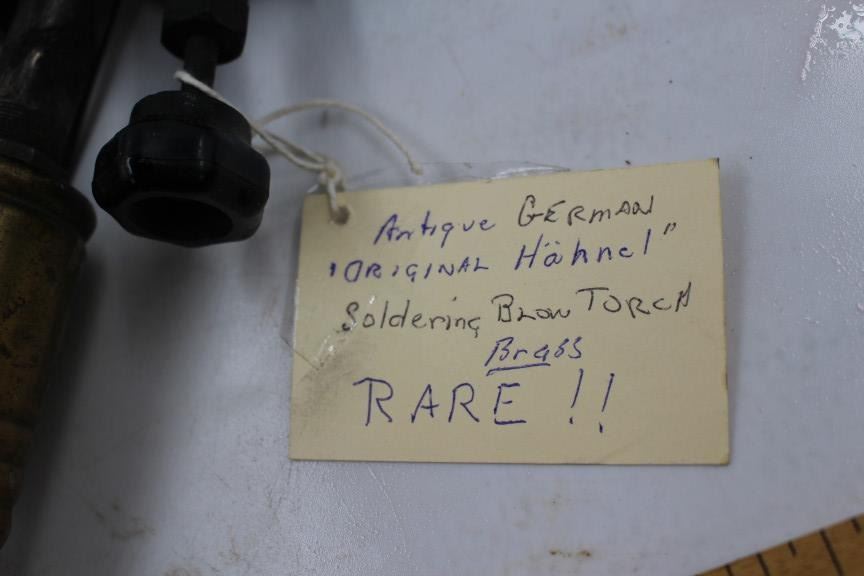 Antique GERMAN
"ORIGINAL Hähnel"
Soldering BLOW TORCH
Brass
RARE !!